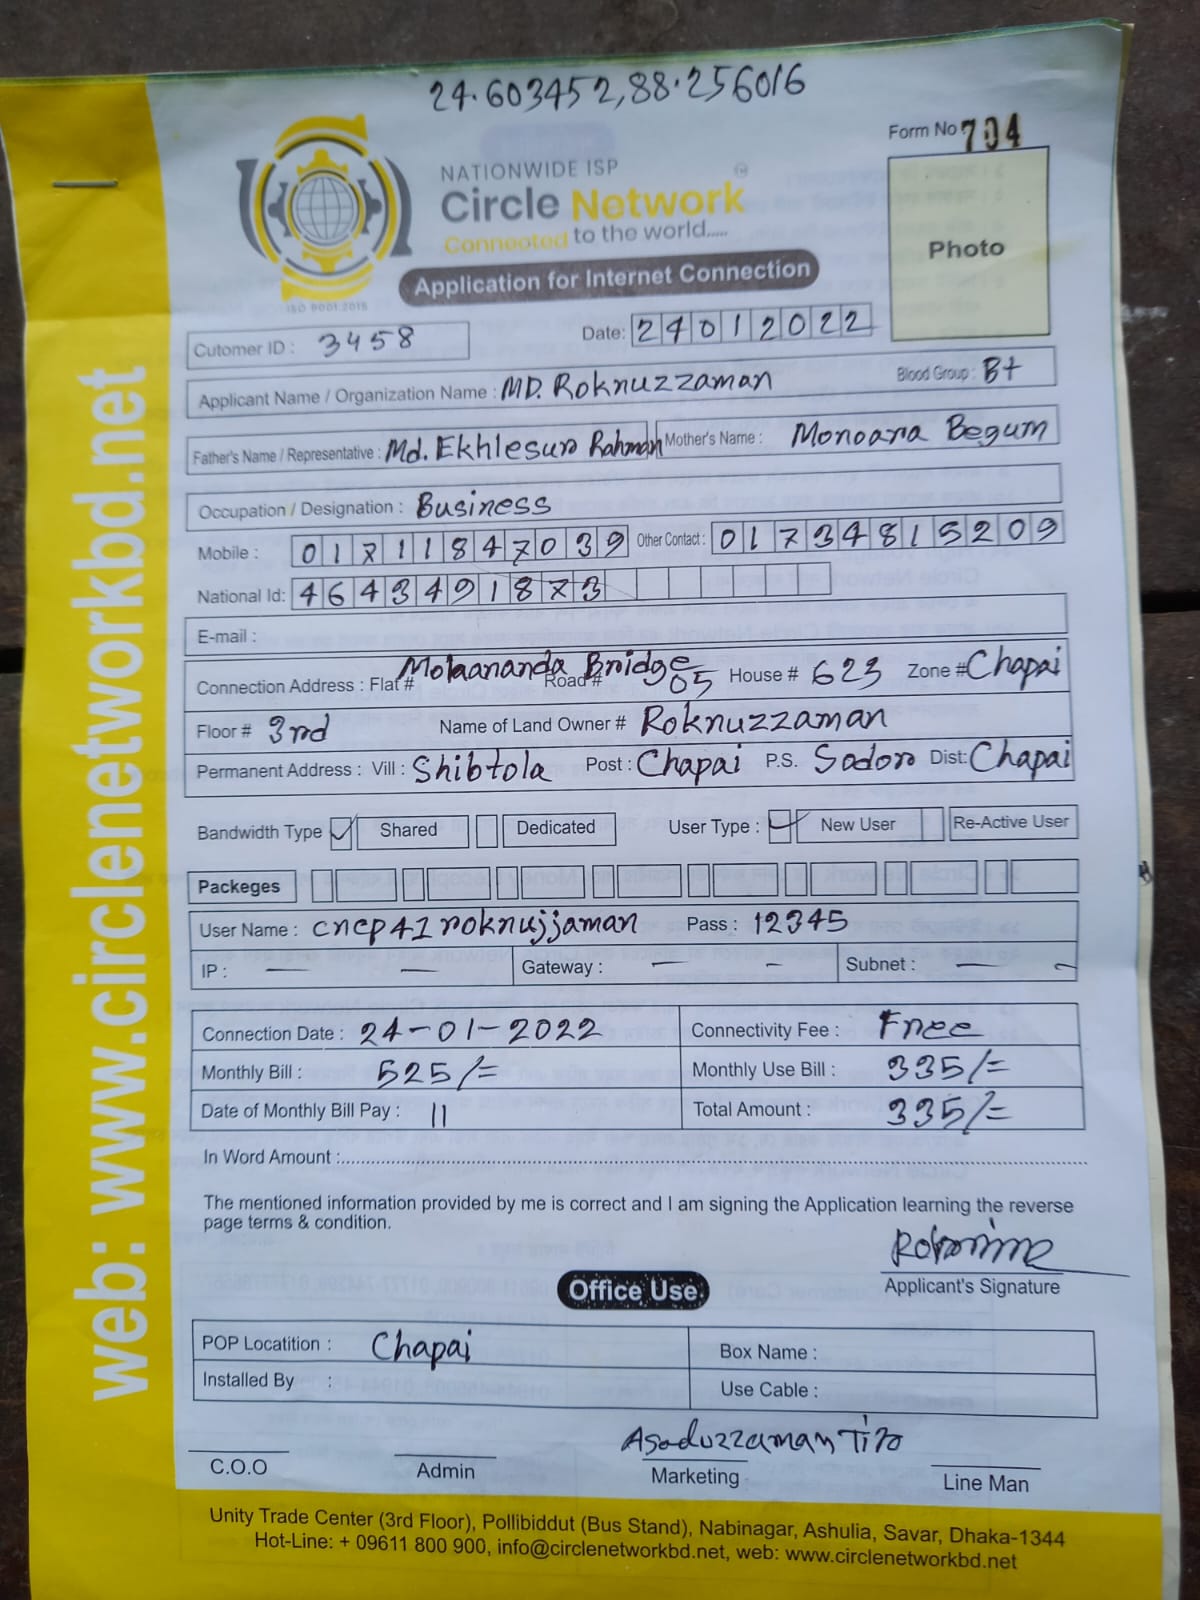 24.603452,88.256016
Form No 704
NATIONWIDE ISP
Circle Network
Connected to the world.....
ISO 9001:2015
Application for Internet Connection
Photo
Cutomer ID : 3458 Date: 24012022
Applicant Name / Organization Name : MD. Roknuzzaman Blood Group : B+
Father's Name / Representative : Md. Ekhlesur Rahman Mother's Name : Monoara Begum
Occupation / Designation : Business
Mobile : 01711847039 Other Contact : 01734815209
National Id: 4643491873
E-mail :
Connection Address : Flat # Road # 05 House # 623 Zone # Chapai
Bridge
Floor # 3rd Name of Land Owner # Roknuzzaman
Permanent Address : Vill : Shibtola Post : Chapai P.S. Sador Dist: Chapai
Bandwidth Type Shared Dedicated User Type : New User Re-Active User
Packeges
User Name : cncp41roknujjaman Pass : 12345
IP : — — Gateway : — - Subnet : — -
Connection Date : 24-01-2022 Connectivity Fee : Free
Monthly Bill : 525/= Monthly Use Bill : 335/=
Date of Monthly Bill Pay : 11 Total Amount : 335/=
In Word Amount :
The mentioned information provided by me is correct and I am signing the Application learning the reverse
page terms & condition.
Applicant's Signature
Office Use
POP Locatition : Chapai Box Name :
Installed By : Use Cable :
Asaduzzaman Tito
C.O.O Admin Marketing Line Man
Unity Trade Center (3rd Floor), Pollibiddut (Bus Stand), Nabinagar, Ashulia, Savar, Dhaka-1344
Hot-Line: + 09611 800 900, info@circlenetworkbd.net, web: www.circlenetworkbd.net
web: www.circlenetworkbd.net